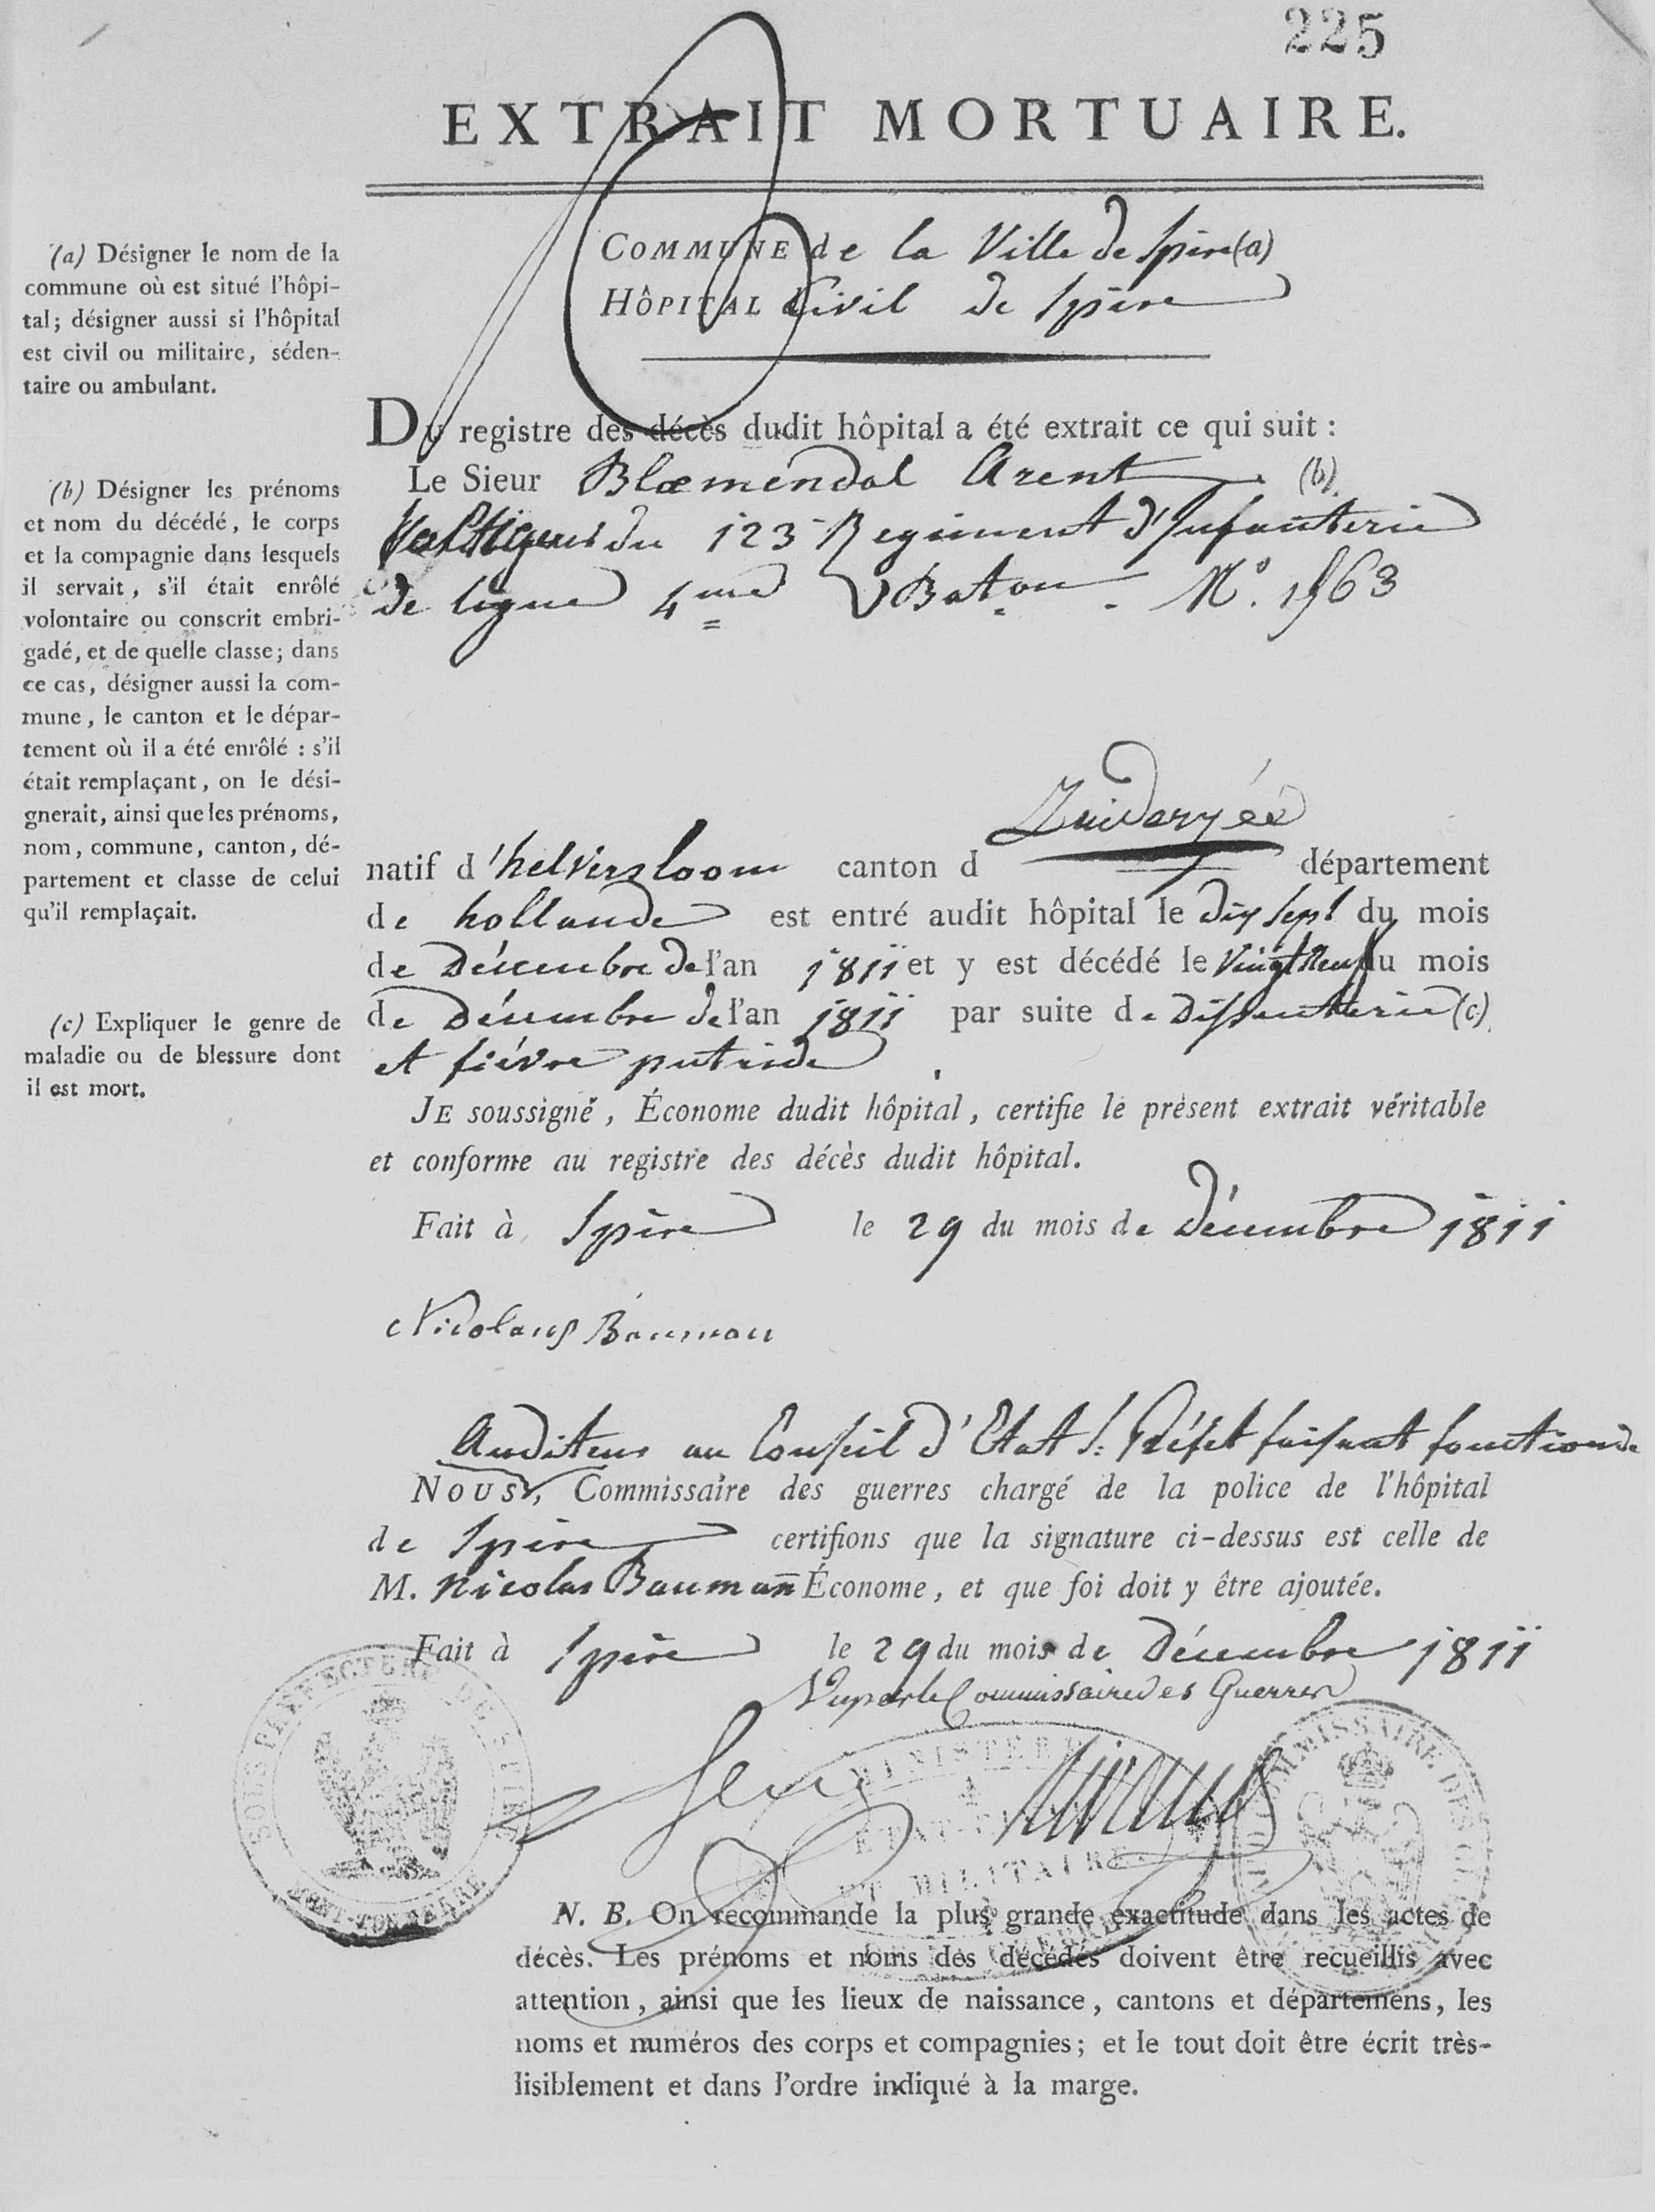 225
EXTRAIT MORTUAIRE.
COMMUNE de la Ville de Spire (a)
HÔPITAL Civil de Spire
(a) Désigner le nom de la
commune où est situé l'hôpi-
tal; désigner aussi si l'hôpital
est civil ou militaire, séden-
taire ou ambulant.
Du registre des décès dudit hôpital a été extrait ce qui suit :
Le Sieur Blœmendal Arent (b)
Voltigeur du 123 Regiment d'Infanterie
de ligne 4me Baton. N°. 1563
(b) Désigner les prénoms
et nom du décédé, le corps
et la compagnie dans lesquels
il servait, s'il était enrôlé
volontaire ou conscrit embri-
gadé, et de quelle classe; dans
ce cas, désigner aussi la com-
mune, le canton et le dépar-
tement où il a été enrôlé : s'il
était remplaçant, on le dési-
gnerait, ainsi que les prénoms,
nom, commune, canton, dé-
partement et classe de celui
qu'il remplaçait.
Zuiderzée
natif d'helversloom canton d département
de hollande est entré audit hôpital le dix sept du mois
de Décembre de l'an 1811 et y est décédé le Vingt Neuf du mois
de Décembre de l'an 1811 par suite de Dissenterie (c)
et fiévre putride
(c) Expliquer le genre de
maladie ou de blessure dont
il est mort.
JE soussigné, Économe dudit hôpital, certifie le présent extrait véritable
et conforme au registre des décès dudit hôpital.
Fait à Spire le 29 du mois de Décembre 1811
Nicolaus Bauman
Auditeur au Conseil d'Etat S. Préfet faisant fonction de
NOUS, Commissaire des guerres chargé de la police de l'hôpital
de Spire certifions que la signature ci-dessus est celle de
M. Nicolas Baumann Économe, et que foi doit y être ajoutée.
Fait à Spire le 29 du mois de Décembre 1811
Vu par le Commissaire des Guerres
SOUS PREFECTURE DE SPIRE
MONT-TONNERRE
MINISTERE
ETAT-CIVIL
ET MILITAIRE
COMMISSAIRE DES GUERRES
N. B. On recommande la plus grande exactitude dans les actes de
décès. Les prénoms et noms des décédés doivent être recueillis avec
attention, ainsi que les lieux de naissance, cantons et départemens, les
noms et numéros des corps et compagnies; et le tout doit être écrit très-
lisiblement et dans l'ordre indiqué à la marge.